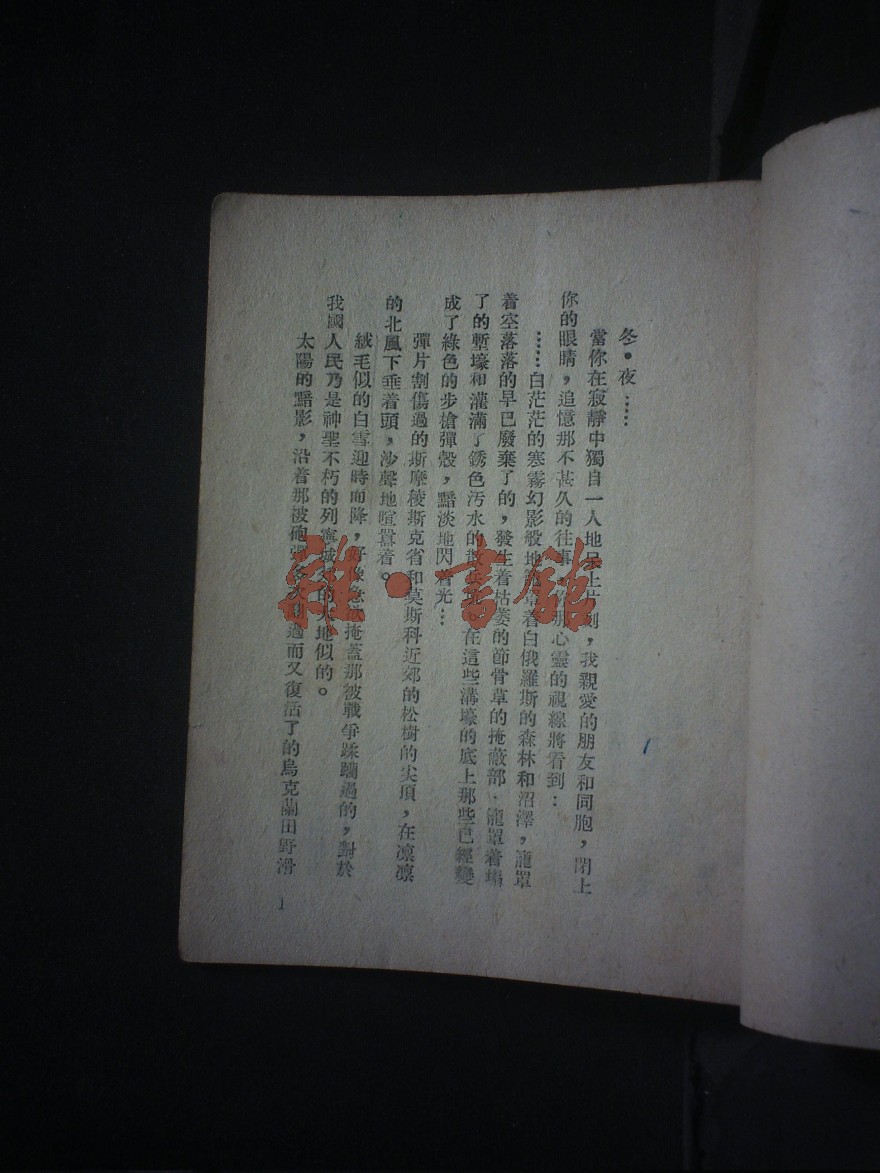 冬•夜……
當你在寂靜中獨自一人地呆上片刻，我親愛的朋友和同胞，閉上
你的眼睛，追憶那不甚久的往事，你那心靈的視線將看到：
……白茫茫的寒霧幻影般地籠罩着白俄羅斯的森林和沼澤，籠罩
着空落落的早已廢棄了的，發生着枯萎的節骨草的掩蔽部，籠罩着塌
了的塹壕和灌滿了銹色污水的散兵坑，在這些溝壕的底上那些已經變
成了綠色的步槍彈殼，黯淡地閃着光…
彈片割傷過的斯摩稜斯克省和莫斯科近郊的松樹的尖頂，在凛凛
的北風下垂着頭，沙聲地喧囂着。
絨毛似的白雪迎時而降，好像急欲掩蓋那被戰爭蹂躪過的，對於
我國人民乃是神聖不朽的列寧城的大地似的。
太陽的黯影，沿着那被砲彈過而又復活了的烏克蘭田野滑
1
雜•書館